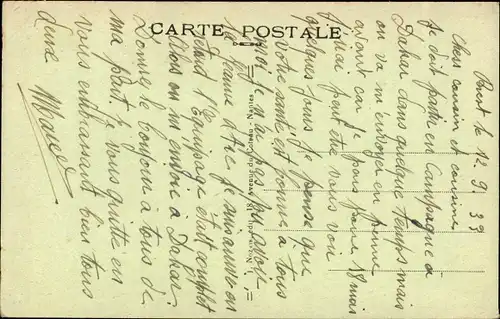 CARTE POSTALE
Brest le 12.9.39
Chers cousin et cousine
Je doit partir en Campagne a
Dakar dans quelque temps mais
on va m'envoyer en perme
avant car je pars pour 18 mois
j'irai peut être vous voir
quelques jours Je pense que
votre santé est bonne a tous
moi je n'ai pas pu avoir
la Jeanne d'Arc je suis arrivé en
retard l'Equipage était complet
Alors on m'envoie a Dakar.
Donne le bonjour à tous de
ma part. Je vous quitte en
vous embrassant bien tous
deux
Marcel